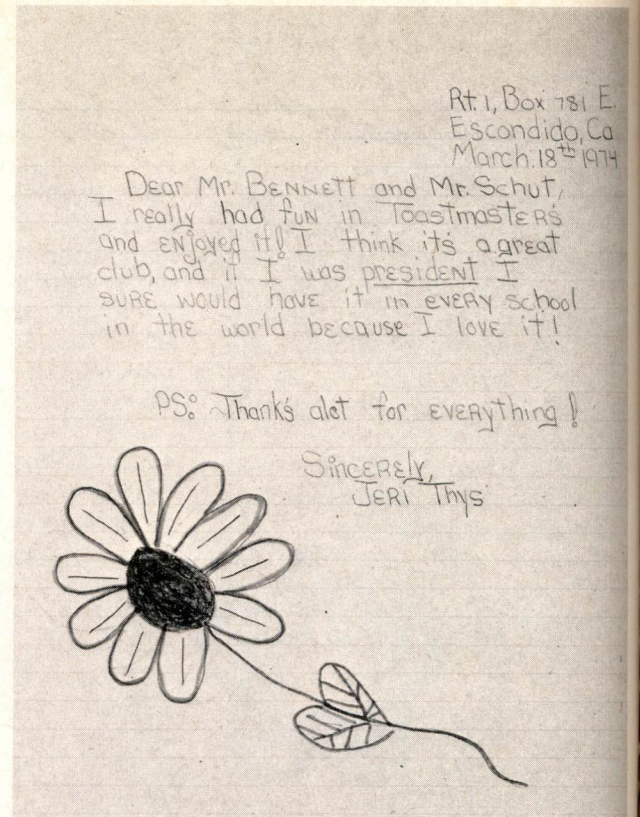 Rt. 1, Box 781 E.
Escondido, Ca
March. 18th 1974
Dear Mr. BENNEtt and Mr. Schut,
I really had fuN in ToastmastERs
and ENjoyed it! I think it's a great
club, and if I was president I
SURE would have it in EVERY school
in the world bEcause I love it!
PS: Thank's alot for EVERything!
SincERELy,
JERi Thys